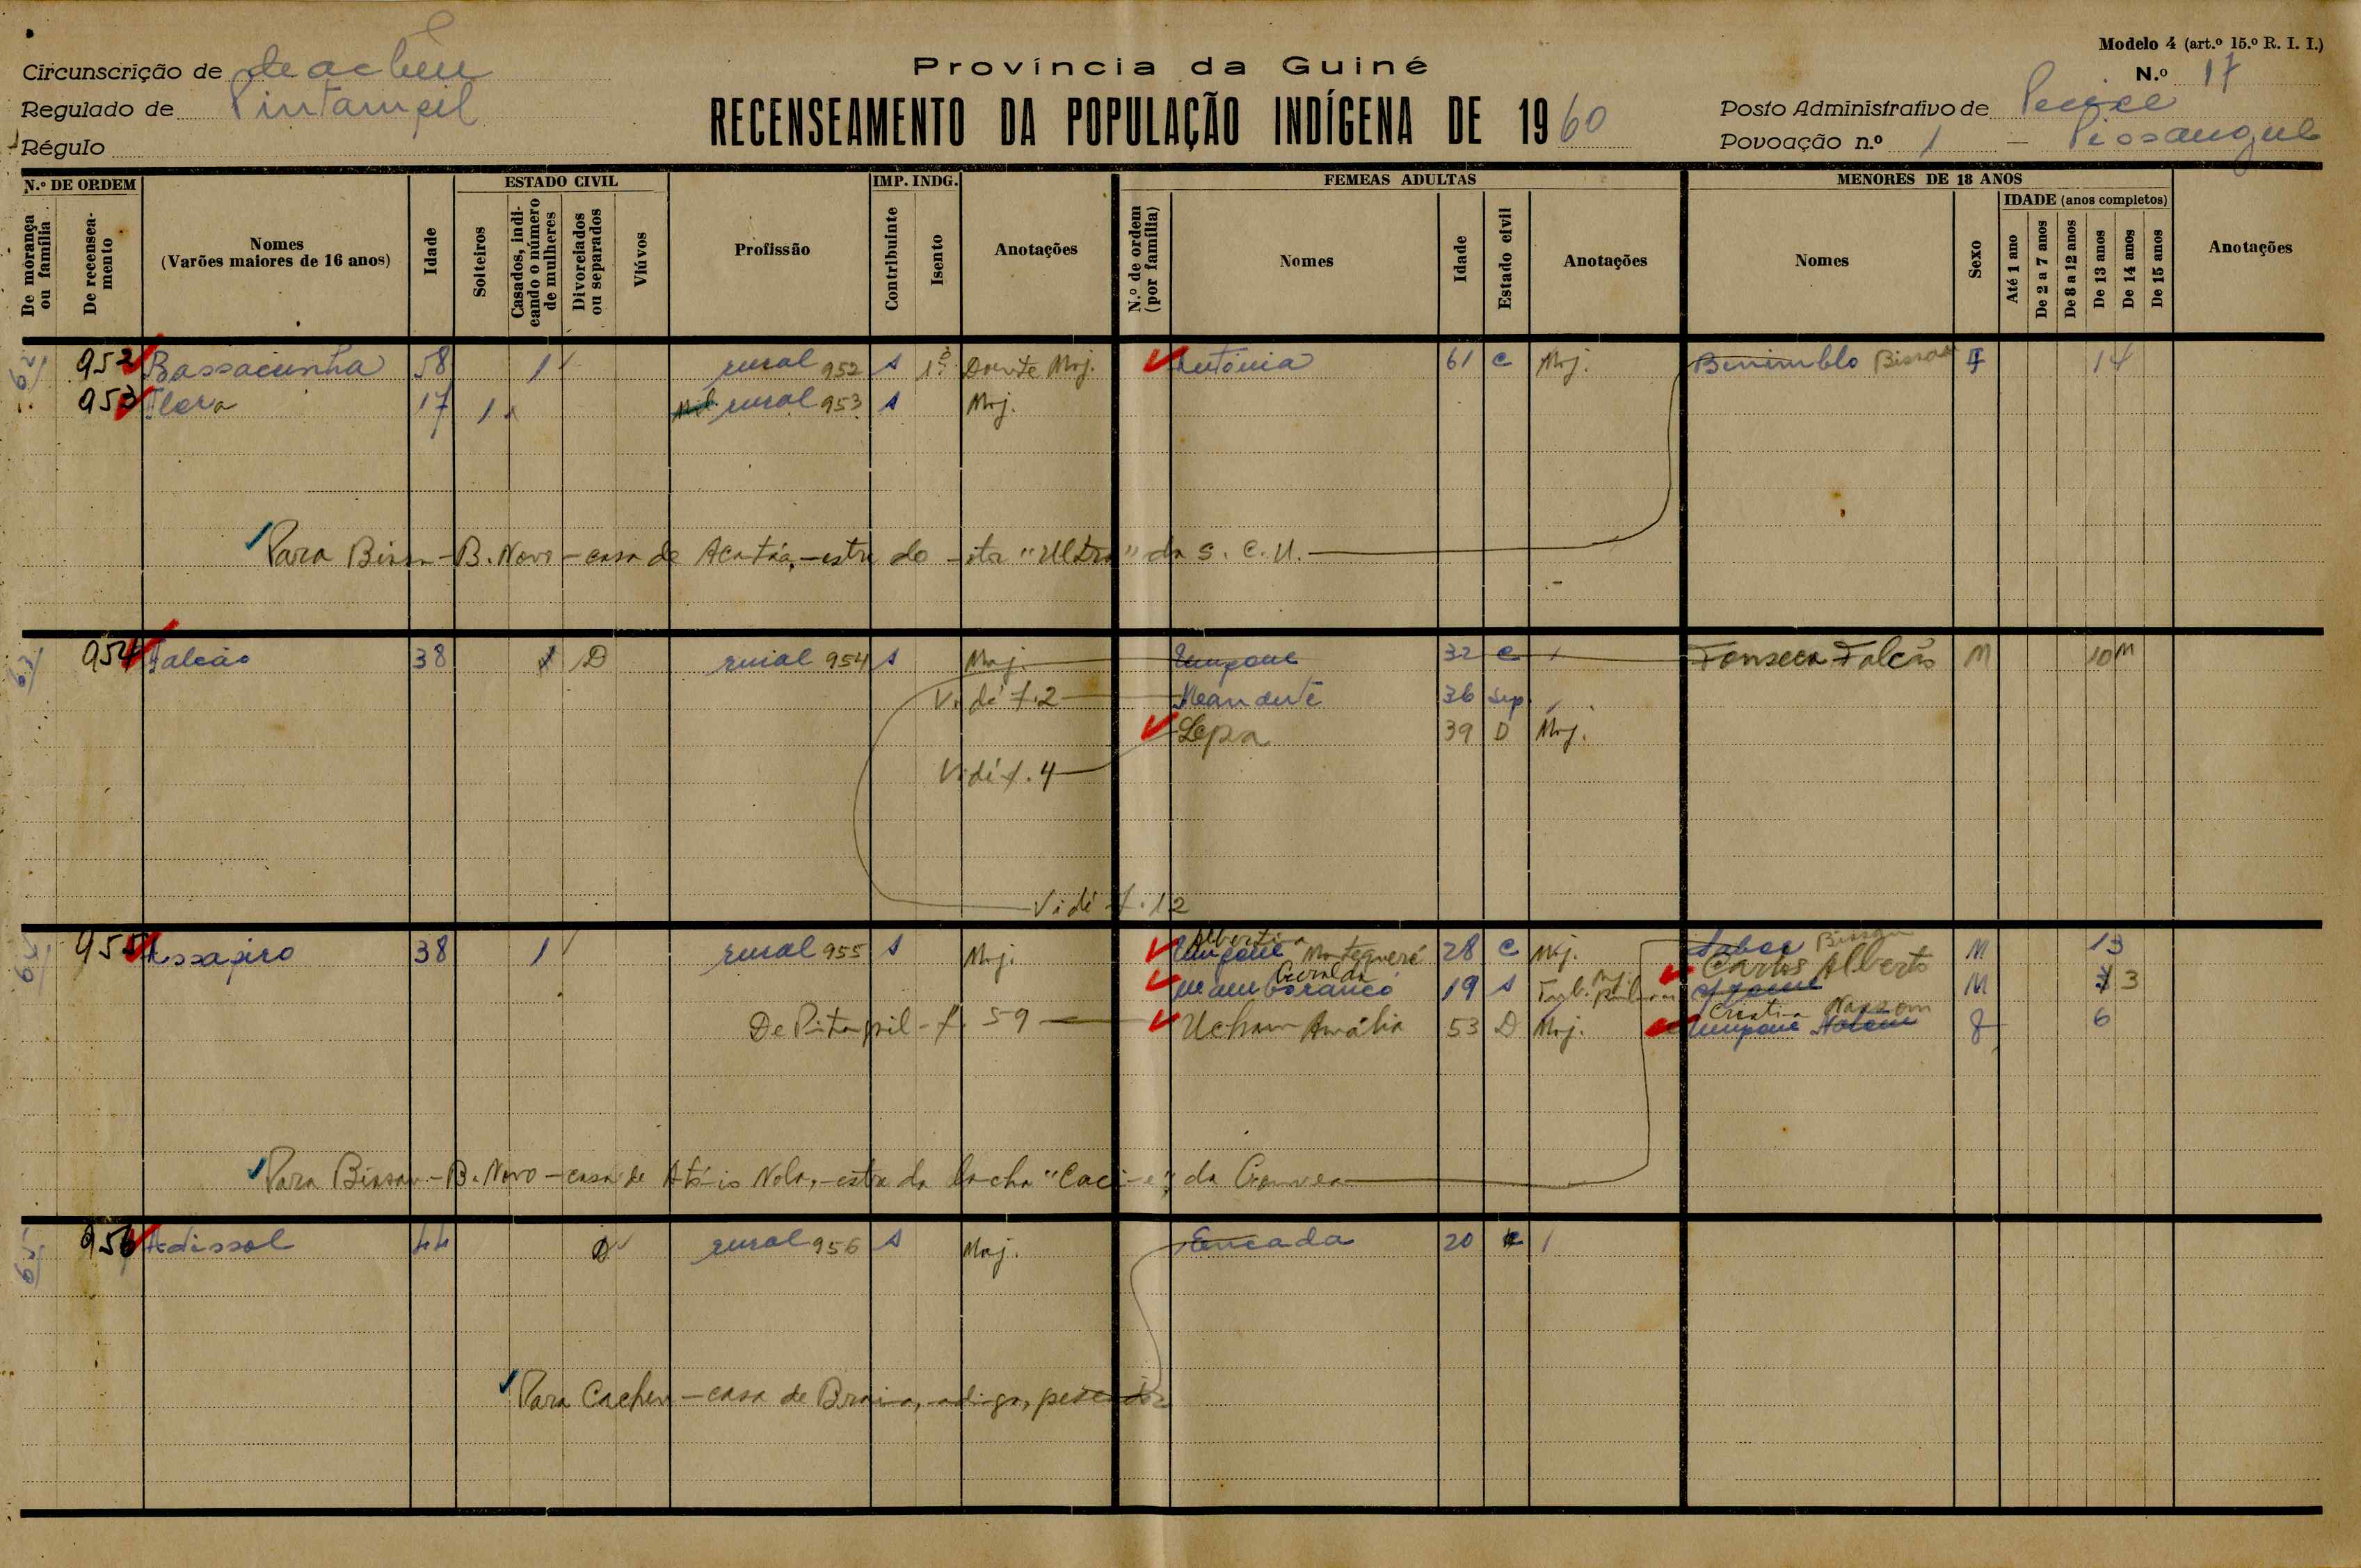 Modelo 4 (art.º 15.º R. I. I.)
Província da Guiné
N.º 17
Circunscrição de
Regulado de Pintampil
Régulo
RECENSEAMENTO DA POPULAÇÃO INDÍGENA DE 1960
Posto Administrativo de Pecixe
Povoação n.º 1 —
N.º DE ORDEM
De morança ou família
De recenseamento
Nomes
(Varões maiores de 16 anos)
Idade
ESTADO CIVIL
Solteiros
Casados, indicando o número de mulheres
Divorciados ou separados
Viúvos
Profissão
IMP. INDG.
Contribuinte
Isento
Anotações
FEMEAS ADULTAS
N.º de ordem (por família)
Nomes
Idade
Estado civil
Anotações
MENORES DE 18 ANOS
Nomes
Sexo
IDADE (anos completos)
Até 1 ano
De 2 a 7 anos
De 8 a 12 anos
De 13 anos
De 14 anos
De 15 anos
Anotações
62 952 Bassacunha 58 1 rural 952 s Doente Maj. Antónia 61 c Maj. 14
953 Flora 17 1 rural 953 s Maj.
Para Bissau - B. Novo - casa de do da S. C. U.
63 954 Falcão 38 D rural 954 s Maj. Umpane 32 c Fonseca Falcão M 10 M
Vidé f. 2 36 Sep.
Lepa 39 D Maj.
Vidé f. 4
Vidé f. 12
64 955 Assapiro 38 1 rural 955 s Maj. Albertina Umpane 28 c Maj. Bissau M 13
Geralda 19 s Carlos Alberto M 3
De Pintampil - f. 59 Ucham Amália 53 D Maj. Umpane 6
Para Bissau - B. Novo - casa de da lancha da Gouveia
65 956 Adissol 44 D rural 956 s Maj. Encada 20 c 1
Para Cacheu - casa de pescador